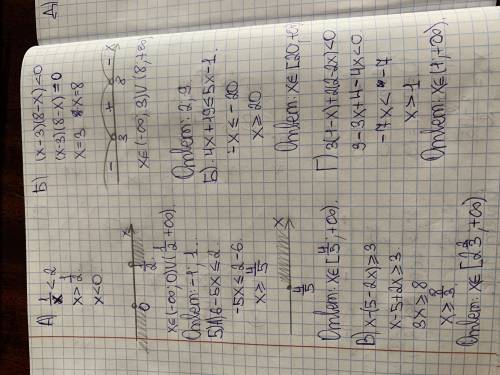 А) 1/x < 2
x > 1/2
x < 0
0 1/2 x
x∈(-∞; 0)∨(1/2; +∞).
Ответ: -1; 1.
5) А) 6-5x ≤ 2
-5x ≤ 2-6
x ≥ 4/5
4/5 x
Ответ: x∈[4/5; +∞).
В) x-(5-2x) ≥ 3
x-5+2x ≥ 3
3x ≥ 8
x ≥ 8/3
Ответ: x∈[2 2/3; +∞)
Б) (x-3)(8-x) < 0
(x-3)(8-x) = 0
x=3 x=8
- 3 + 8 - x
x∈(-∞; 3)∨(8; +∞)
Ответ: 2; 9.
Б) 4x+19 ≤ 5x-1.
-x ≤ -20
x ≥ 20
Ответ: x∈[20; +∞)
Г) 3(1-x)+2(2-2x)<0
3-3x+4-4x<0
-7x < -7
x > 1
Ответ: x∈(1; +∞).
Д)